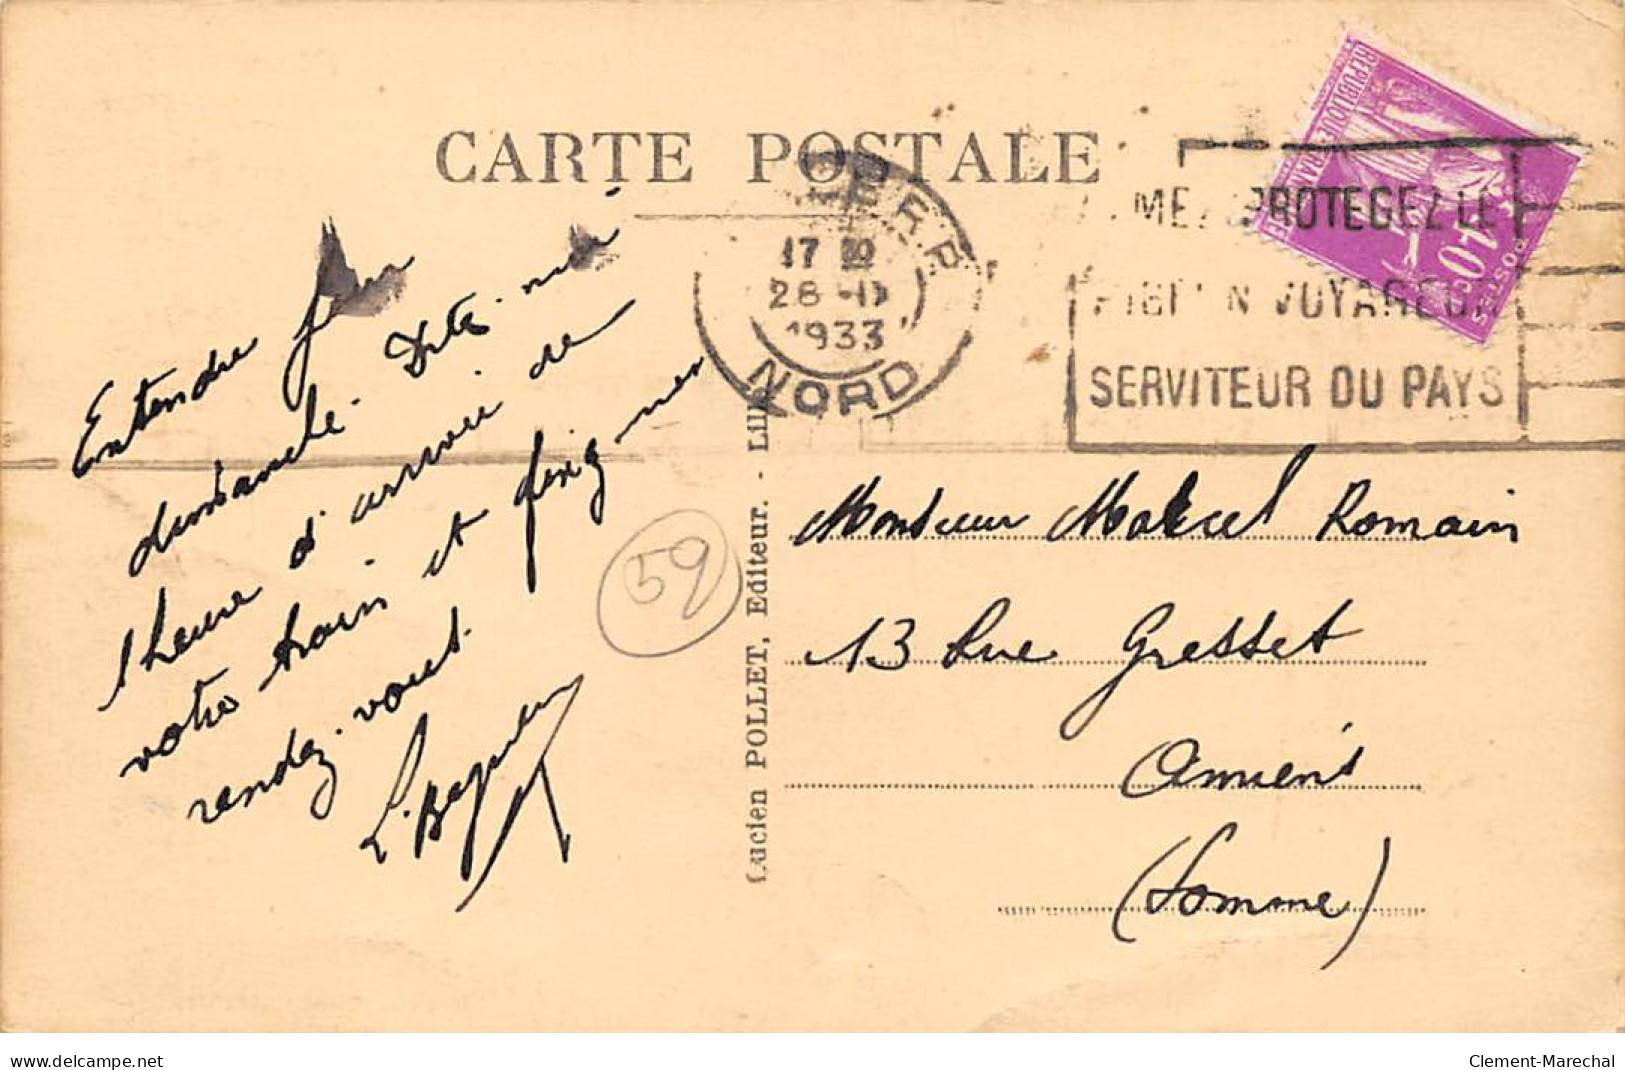 CARTE POSTALE
17
28-11
1933
NORD
PROTEGEZ LE
VOYAGEUR
SERVITEUR DU PAYS
REPUBLIQUE
40c
POSTES
Entendu pour
dimanche. Dites-moi
l'heure d'arrivée de
votre train et fixez-moi
rendez-vous.
59
Lucien POLLET, Editeur. - Lille
Monsieur Marcel Romain
13 Rue Gresset
Amiens
(Somme)
www.delcampe.net
Clement-Marechal